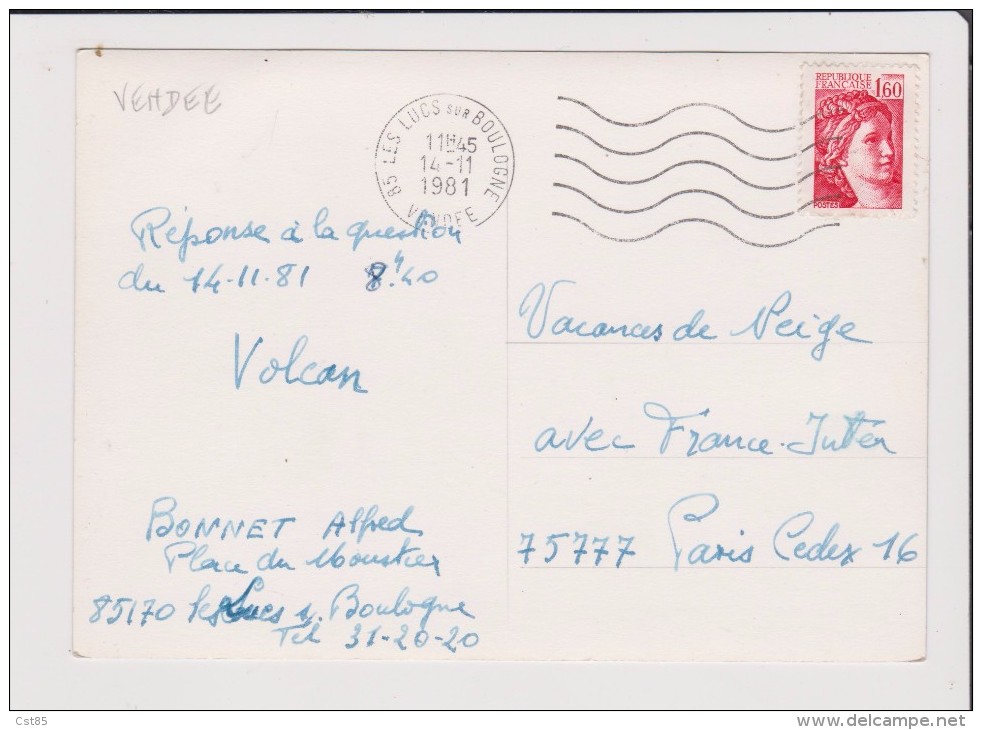 VENDEE
85 LES LUCS SUR BOULOGNE
11H45
14-11
1981
VENDEE
REPUBLIQUE
FRANCAISE 1,60
POSTES
Réponse à la question
du 14-11-81 8h40
Volcan
BONNET Alfred
Place du Moustier
85170 les Lucs s. Boulogne
Tél 31-20-20
Vacances de Neige
avec France-Inter
75777 Paris Cedex 16
Cst85
delcampe.net